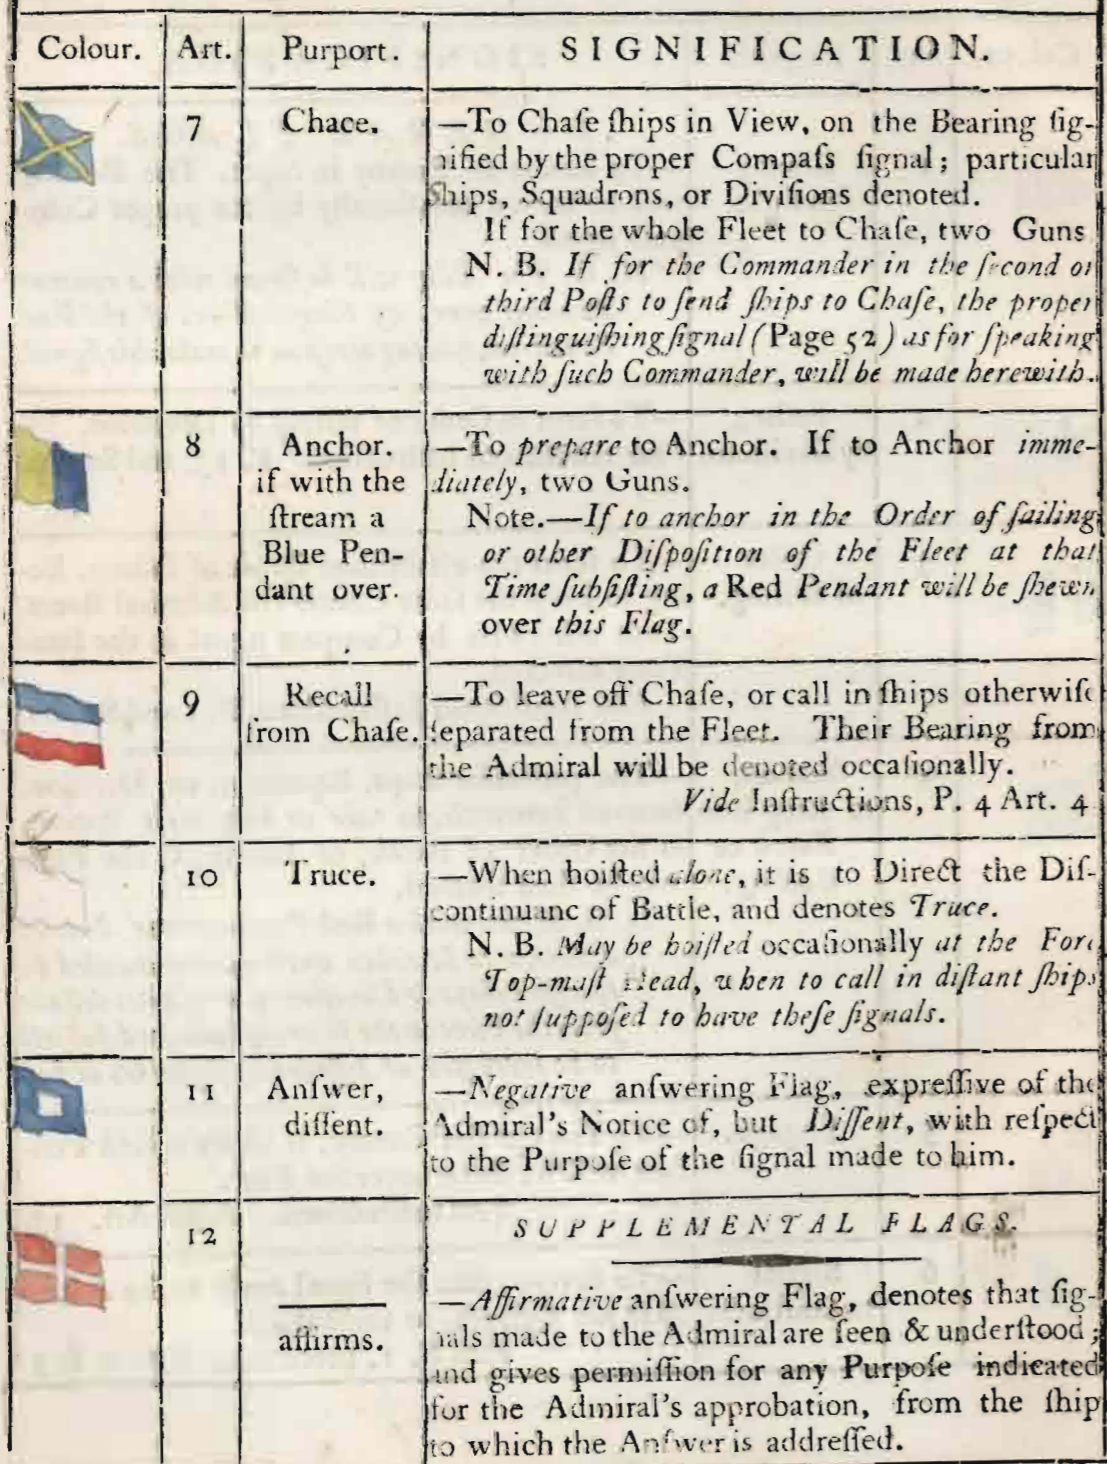 Colour. Art. Purport. SIGNIFICATION.
7 Chace. —To Chaſe ſhips in View, on the Bearing ſig-
nified by the proper Compaſs ſignal; particular
Ships, Squadrons, or Diviſions denoted.
If for the whole Fleet to Chaſe, two Guns
N. B. If for the Commander in the ſecond or
third Poſts to ſend ſhips to Chaſe, the proper
diſtinguiſhing ſignal (Page 52) as for ſpeaking
with ſuch Commander, will be made herewith.
8 Anchor. —To prepare to Anchor. If to Anchor imme-
if with the diately, two Guns.
ſtream a Note.—If to anchor in the Order of ſailing
Blue Pen- or other Diſpoſition of the Fleet at that
dant over. Time ſubſiſting, a Red Pendant will be ſhewn
over this Flag.
9 Recall —To leave off Chaſe, or call in ſhips otherwiſe
from Chaſe. ſeparated from the Fleet. Their Bearing from
the Admiral will be denoted occaſionally.
Vide Inſtructions, P. 4 Art. 4
10 Truce. —When hoiſted alone, it is to Direct the Diſ-
continuanc of Battle, and denotes Truce.
N. B. May be hoiſted occaſionally at the Fore
Top-maſt Head, when to call in diſtant ſhips
not ſuppoſed to have theſe ſignals.
11 Anſwer, —Negative anſwering Flag, expreſſive of the
diſſent. Admiral's Notice of, but Diſſent, with reſpect
to the Purpoſe of the ſignal made to him.
12 SUPPLEMENTAL FLAGS.
—Affirmative anſwering Flag, denotes that ſig-
affirms. nals made to the Admiral are ſeen & underſtood;
and gives permiſſion for any Purpoſe indicated
for the Admiral's approbation, from the ſhip
to which the Anſwer is addreſſed.